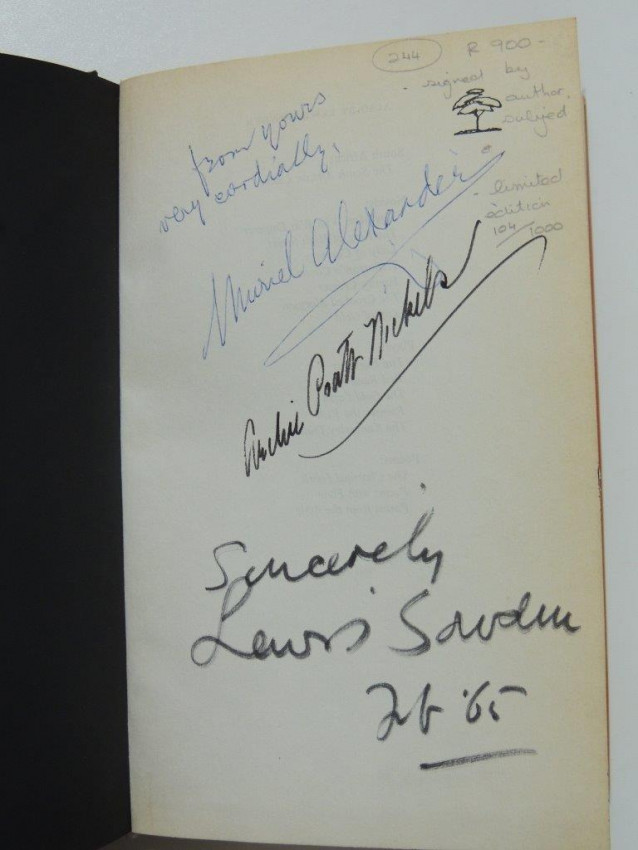 244 R 900-
- signed by
author,
subject
from yours
very cordially,
Muriel Alexander
- limited
edition
104/1000
Archie Pratt Nickels
Sincerely
Lewis Sowden
Feb '65